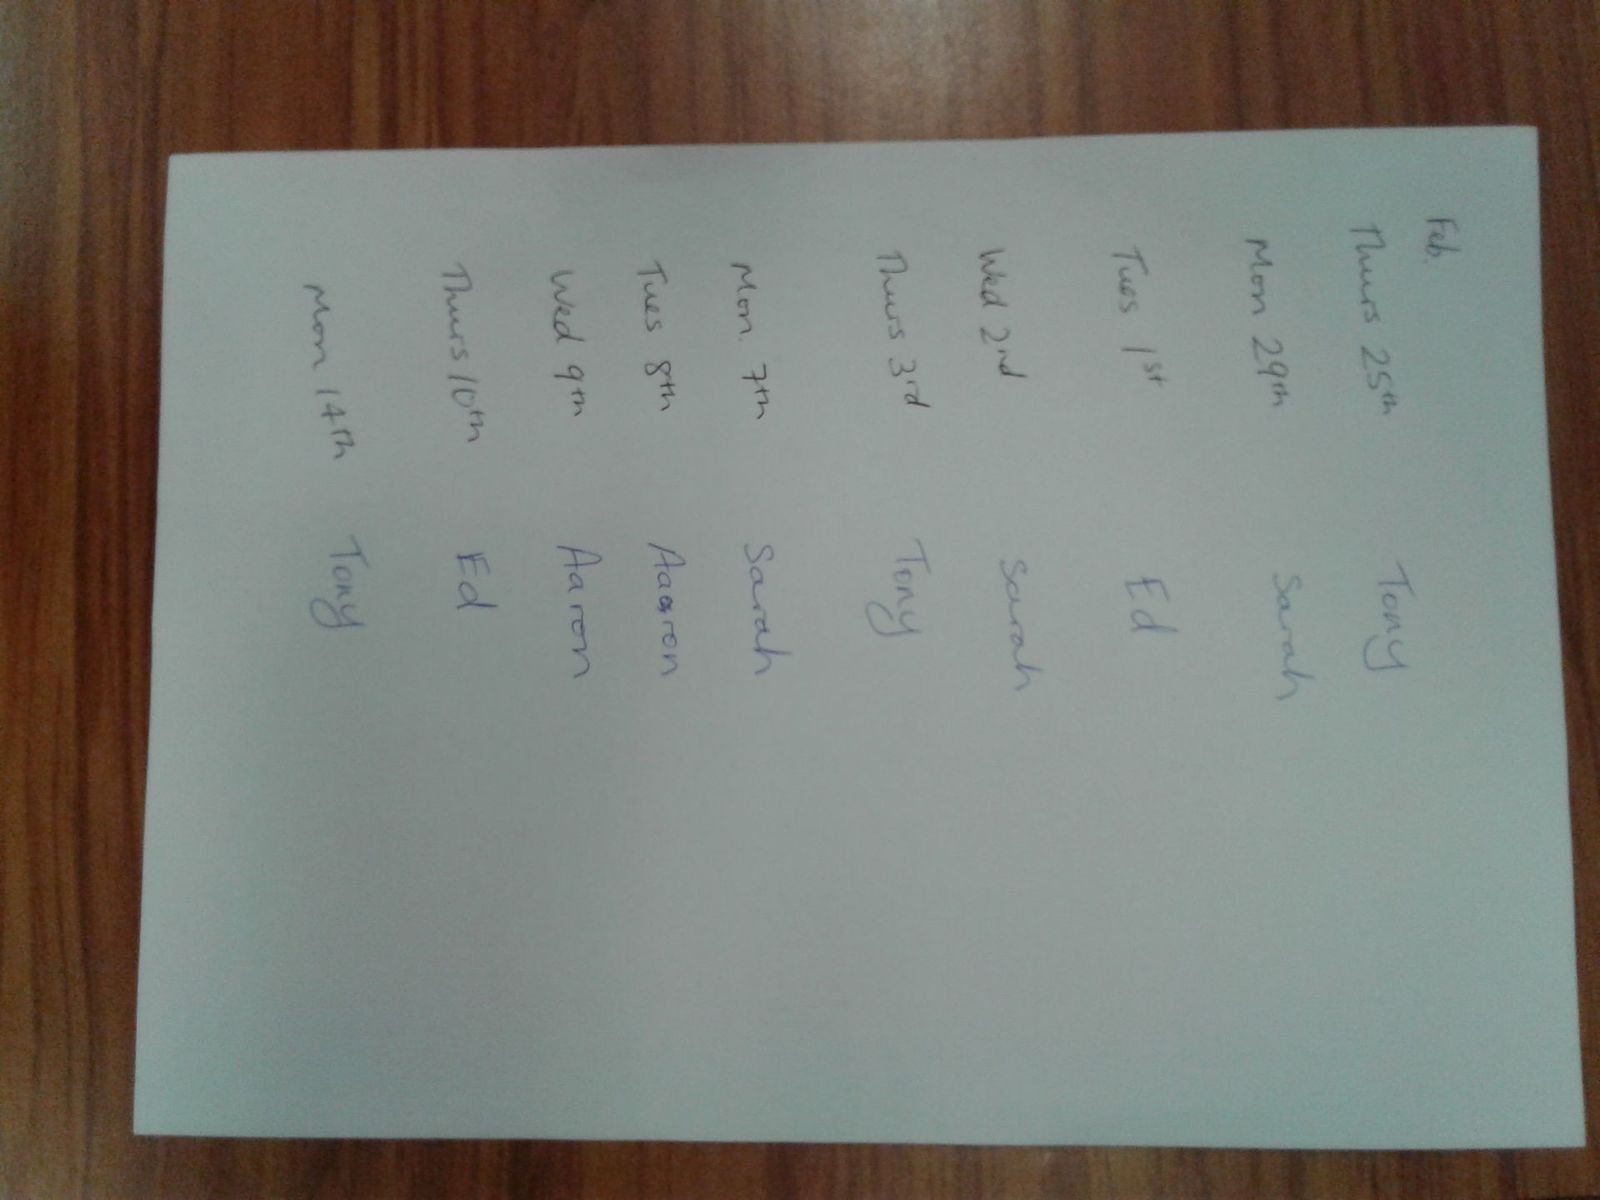 Feb.
Thurs 25th Tony
Mon 29th Sarah
Tues 1st Ed
Wed 2nd Sarah
Thurs 3rd Tony
Mon. 7th Sarah
Tues 8th Aaaron
Wed 9th Aaron
Thurs 10th Ed
Mon 14th Tony